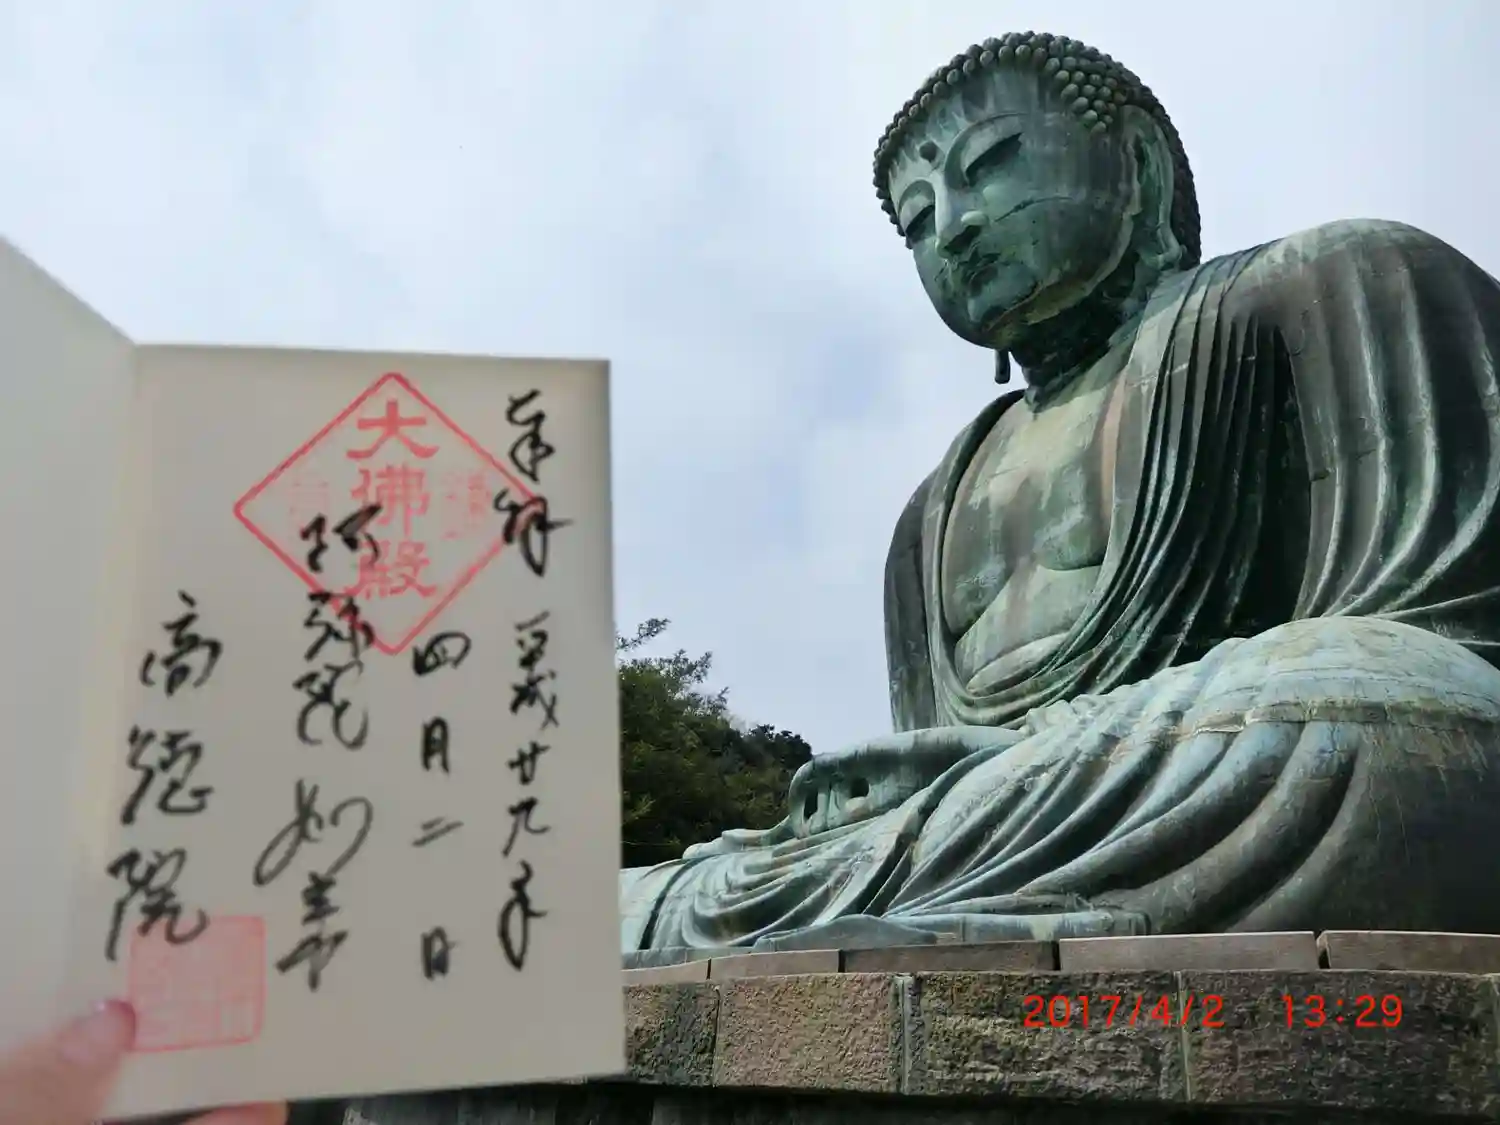 奉拝 平成廿九年
四月二日
大佛殿
阿弥陀如来
高徳院
2017/4/2 13:29